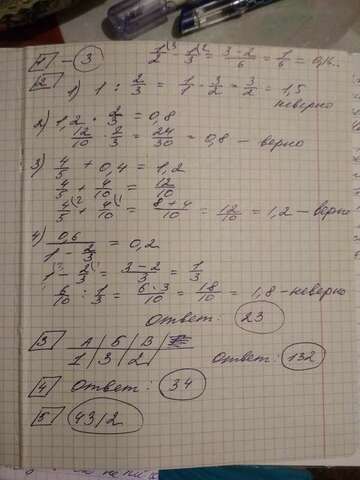 1 - 3 1/2 - 1/3 = 3-2/6 = 1/6 = 0,1...
2 1) 1 : 2/3 = 1/1 · 3/2 = 3/2 = 1,5
неверно
2) 1,2 · 2/3 = 0,8
12/10 · 2/3 = 24/30 = 0,8 - верно
3) 4/5 + 0,4 = 1,2
4/5 + 4/10 = 12/10
4/5 + 4/10 = 8+4/10 = 12/10 = 1,2 - верно
4) 0,6/1 - 2/3 = 0,2
1 - 2/3 = 3-2/3 = 1/3
6/10 : 1/3 = 6·3/10 = 18/10 = 1,8 - неверно
Ответ: 23
3 А Б В
1 3 2 Ответ: 132
4 Ответ: 34
5 4312